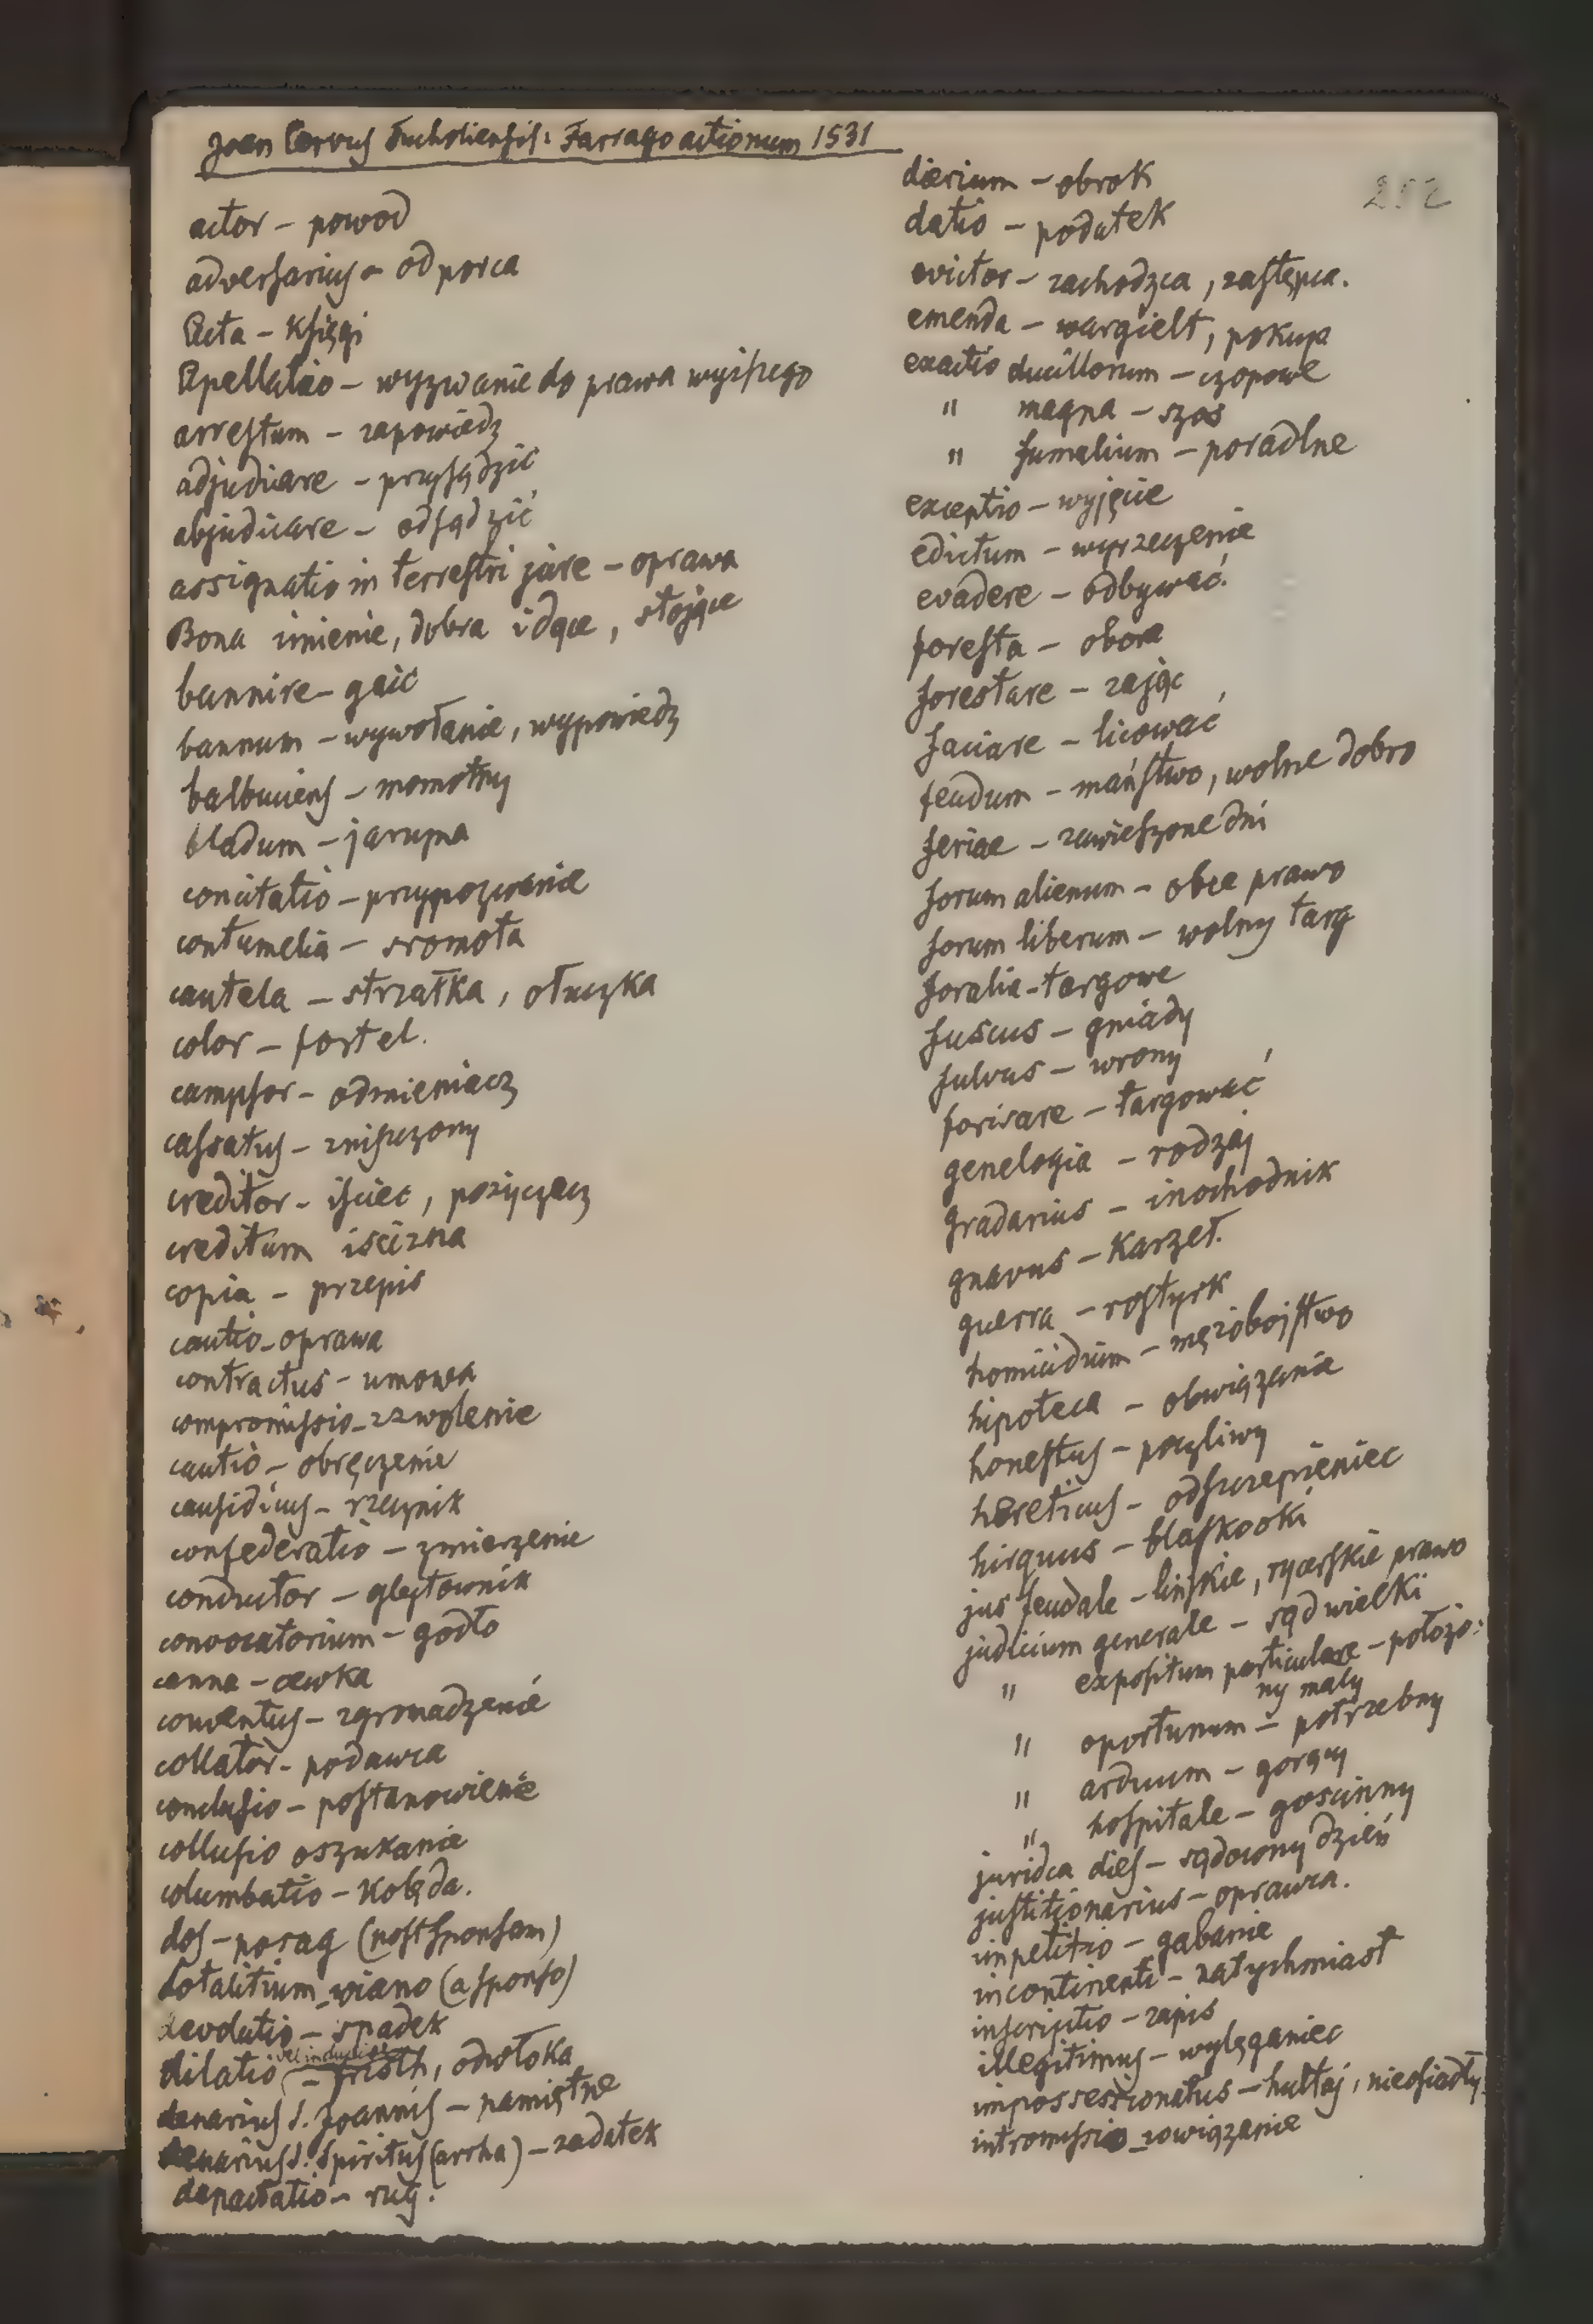 Joan Cervus Tucholiensis: Farrago actionum 1531
actor – powod
adversarius – odporca
Acta – Księgi
Apellatio – wyzwanie do prawa wyższego
arrestum – zapowiedz
adjudicare – przysądzić
abjudicare – odsądzić
assignatio in terrestri jure – oprawa
Bona imienie, dobra idące, stojące
bannire – gaić
bannum – wywołanie, wypowiedz
balbuciens – momotny
bladum – jarzyna
concitatio – przypozwanie
contumelia – sromota
cautela – strzałka, otuczka
color – fortel.
campsor – odmieniacz
cassatus – zniszczony
creditor – iściec, pożyczacz
creditum iścizna
copia – przepis
cautio – oprawa
contractus – umowa
compromissio – zezwolenie
cautio – obręczenie
causidicus – rzecznik
confederatio – zmierzenie
conductor – glejtownik
convocatorium – godło
canna – cewka
conventus – zgromadzenie
collator – podawca
conclusio – postanowienie
collusio oszukanie
columbatio – Kolęda.
dos – posag (post sponsam)
dotalitium – wiano (a sponso)
devolutio – spadek
vel induciae
dilatio – fristh, odwłoka
denarius S. Joannis – pamiętne
denarius S. Spiritus (arrha) – zadatek
depactatio – rug.
252
diarium – obrok
datio – podatek
evictor – zachodzca, zastępca.
emenda – wargielt, pokup
exactio ducillorum – czopowe
" magna – szos
" fumalium – poradlne
exceptio – wyjęcie
edictum – wyrzeczenie
evadere – odbywać.
foresta – obora
forestare – zając
faciare – licować
feudum – maństwo, wolne dobro
feriae – zawieszone dni
forum alienum – obce prawo
forum liberum – wolny targ
foralia – targowe
fuscus – gniady
fulvus – wrony
forisare – targować
genelogia – rodzaj
gradarius – inochodnik
gnavus – Karzeł.
guerra – rostyrk
homicidium – mężobojstwo
hipoteca – obwiązanie
honestus – poczliwy
hereticus – odszczepieniec
hirquus – blaskooki
jus feudale – linskie, rycerskie prawo
judicium generale – sąd wielki
" expositum particulare – położo:
ny mały
" oportunum – potrzebny
" arduum – gorący
" hospitale – goscinny
juridca dies – sądowny dzień
justitionarius – oprawca.
inpetitio – gabanie
incontinenti – natychmiast
inscriptio – zapis
illegitimus – wylęganiec
impossessionatus – hultaj, nieosiadły
intromissio – zwwiązanie